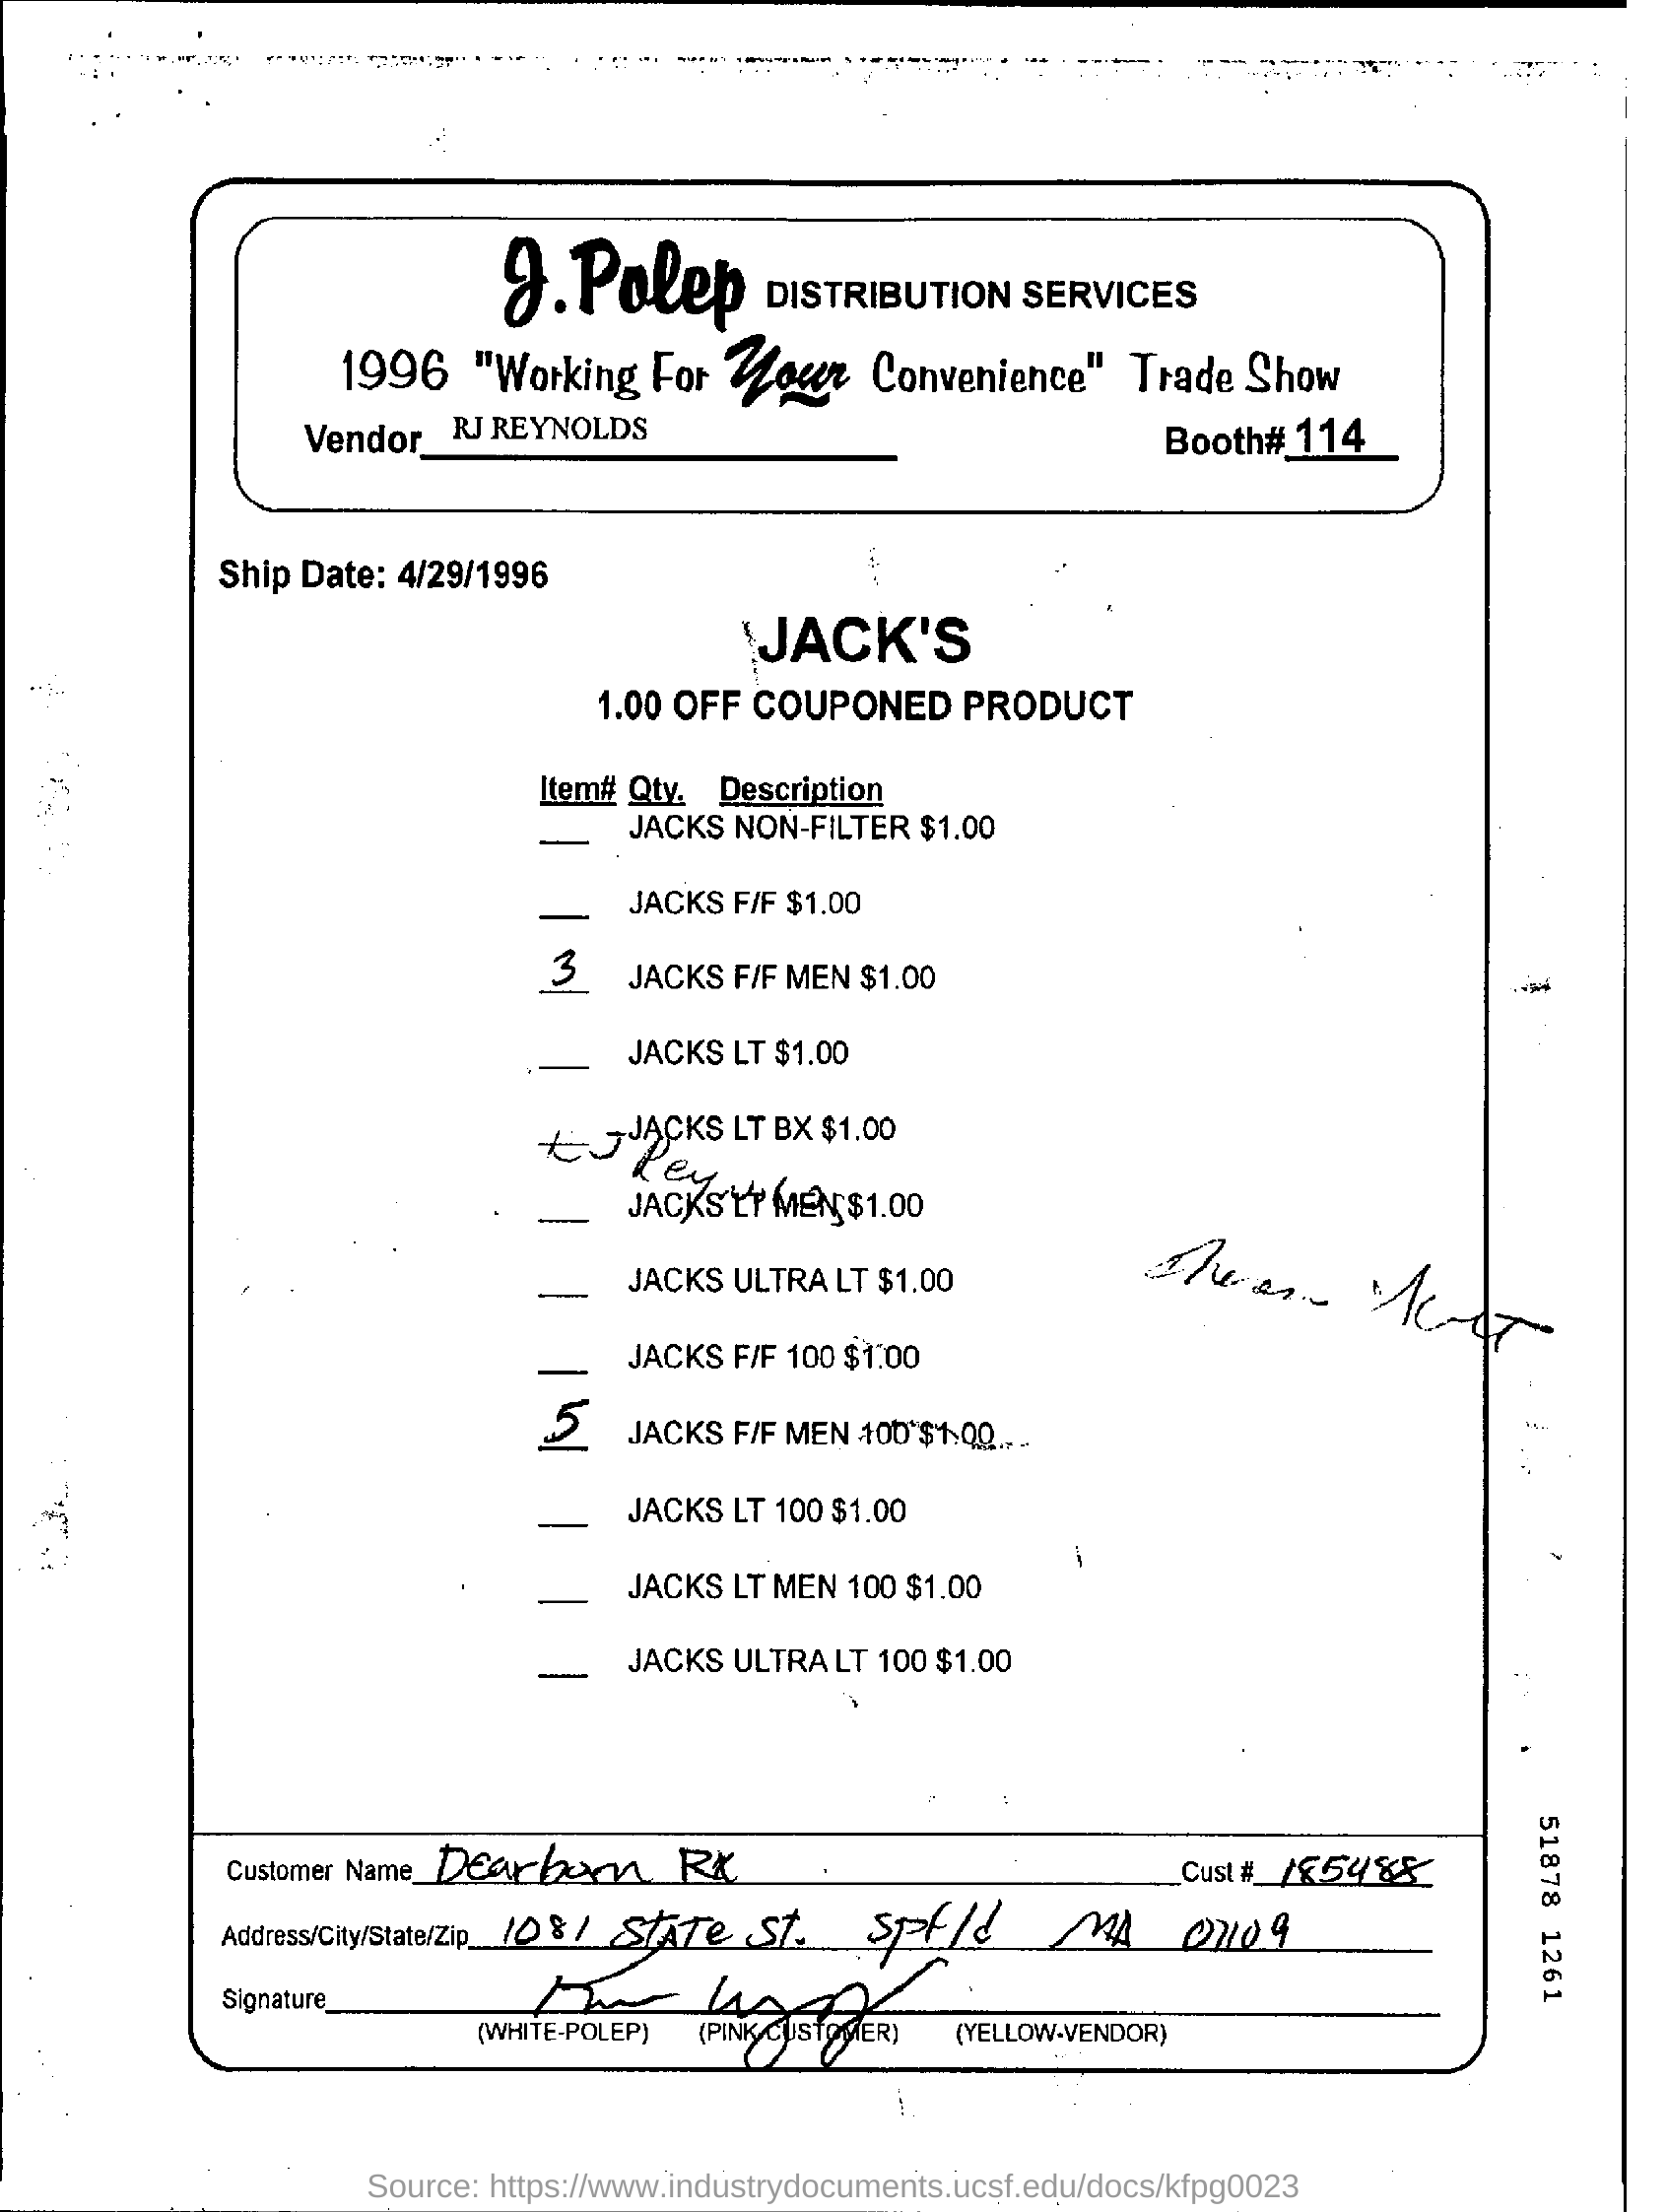 J. Polep DISTRIBUTION SERVICES
1996 "Working For Your Convenience" Trade Show
Vendor RJ REYNOLDS Booth# 114
Ship Date: 4/29/1996
JACK'S
1.00 OFF COUPONED PRODUCT
Item# Qty. Description
JACKS NON-FILTER $1.00
JACKS F/F $1.00
3 JACKS F/F MEN $1.00
JACKS LT $1.00
JACKS LT BX $1.00
JACKS LT MEN $1.00
JACKS ULTRA LT $1.00
JACKS F/F 100 $1.00
5 JACKS F/F MEN 100 $1.00
JACKS LT 100 $1.00
JACKS LT MEN 100 $1.00
JACKS ULTRA LT 100 $1.00
Customer Name Dearborn RX Cust # 185488
Address/City/State/Zip 1081 STATE St. Spfld MA 01109
Signature
(WHITE-POLEP) (PINK-CUSTOMER) (YELLOW-VENDOR)
51878 1261
Source: https://www.industrydocuments.ucsf.edu/docs/kfpg0023